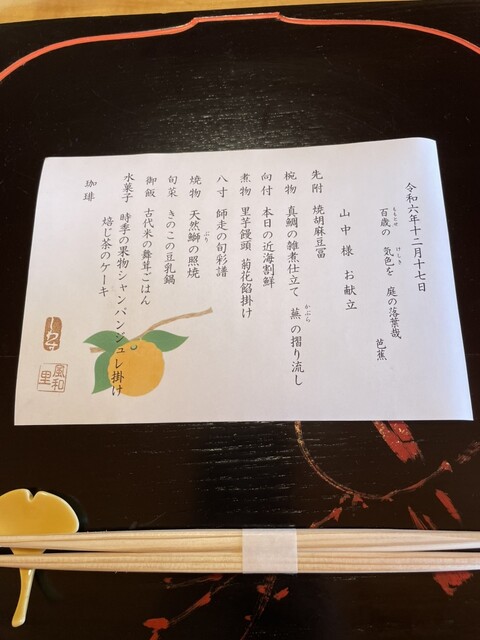 令和六年十二月十七日
百歳の 気色を 庭の落葉哉 芭蕉
ももとせ けしき
山中様 お献立
先附 焼胡麻豆冨
椀物 真鯛の雑煮仕立て 蕪の摺り流し
かぶら
向付 本日の近海割鮮
煮物 里芋饅頭 菊花餡掛け
八寸 師走の旬彩譜
焼物 天然鰤の照焼
ぶり
旬菜 きのこの豆乳鍋
御飯 古代米の舞茸ごはん
水菓子 時季の果物シャンパンジュレ掛け
焙じ茶のケーキ
珈琲
しわす
風和里